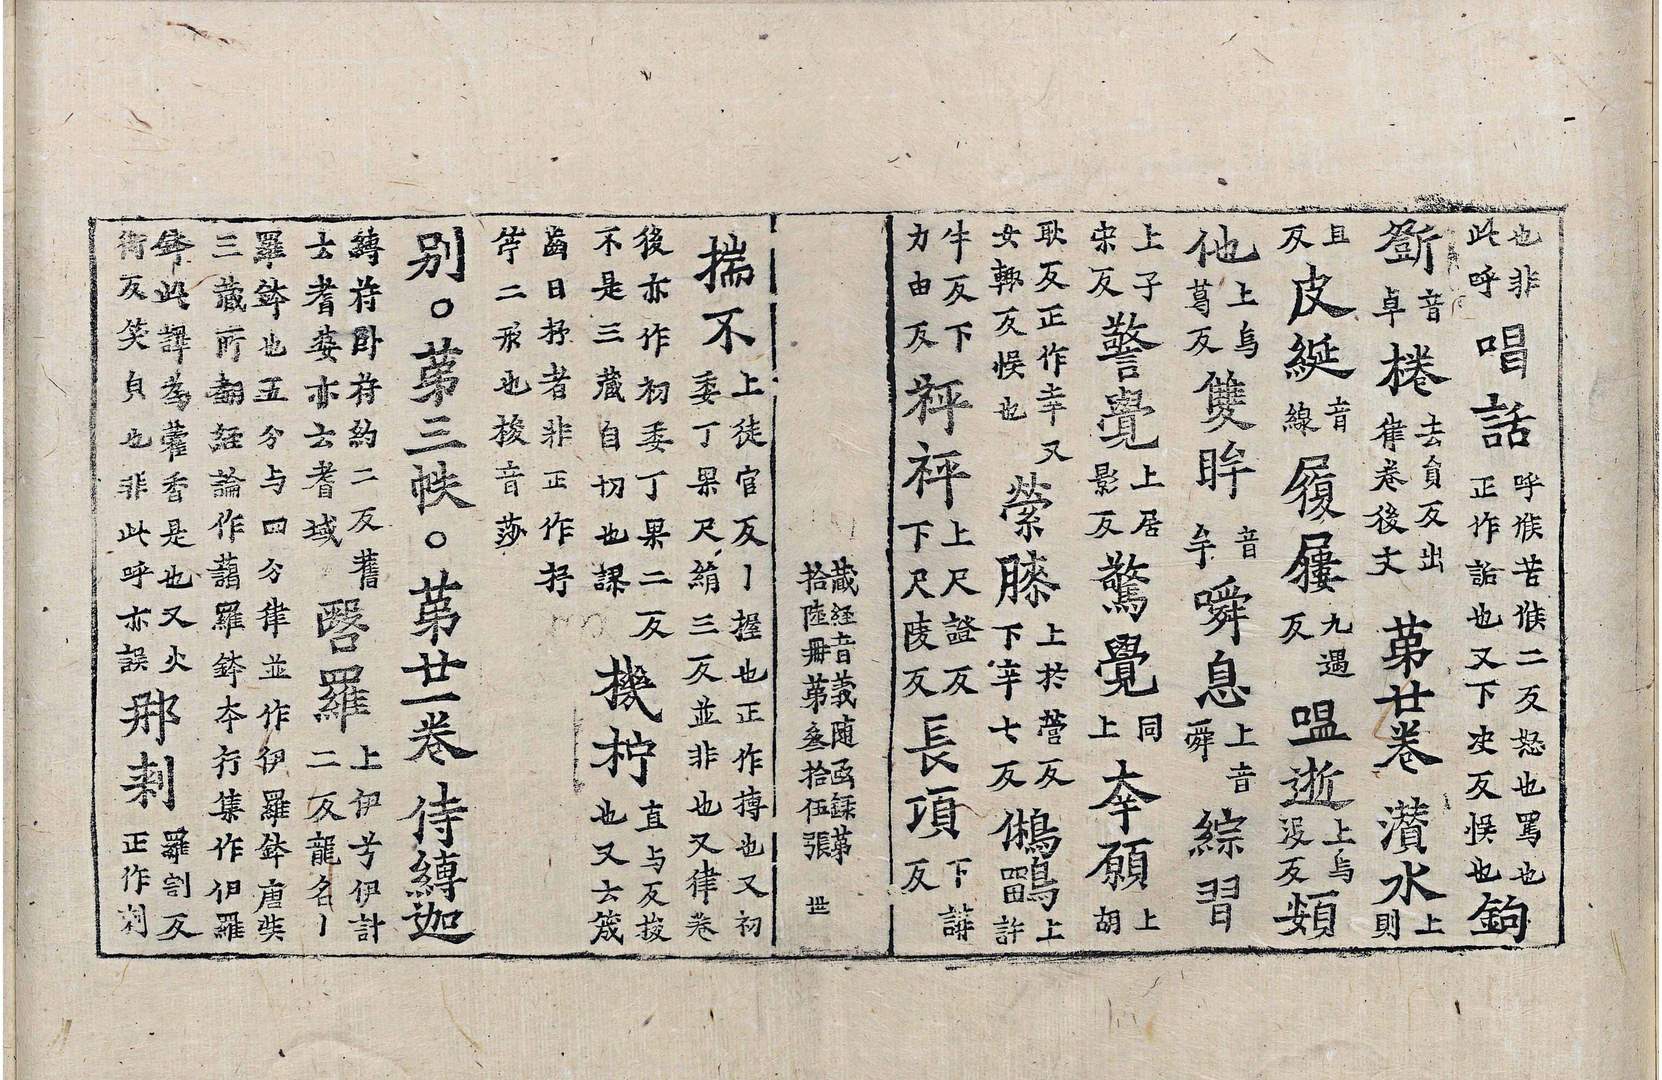 也非此呼唱話呼㑋苦㑋二反怒也罵也正作詬也又下史反悮也鉤
斲音卓棬去負反出律卷後文 苐廿卷 濽水上則
且反皮綖音線履屨九遇反嗢逝上烏沒反頞
他上烏葛反雙眸音牟瞬息上音舜綜習
上子宋反警覺上居影反驚覺同上夲願上胡
耿反正作幸又女輙反悮也縈膝上於營反下辛七反鵂鶹上許
牛反下力由反秤秤上尺證反下尺陵反長項下講反
藏经音義随函録苐拾陸冊苐叄拾伍張 丗
揣不上徒官反丨握也正作摶也又初委丁果尺絹三反並非也又律卷
後亦作初委丁果二反不是三藏自切也諜機柠直与反投也又云筬
齒日杼者非正作抒竿二形也梭音莎
别。苐三帙。苐廿一卷 侍縛迦
縛符卧符約二反舊云耆婆亦云耆域瞖羅上伊兮伊計二反龍名丨
羅鉢也五分与四分律並作伊羅鉢唐奘三藏所翻経論作䕃羅鉢夲行集作伊羅
鉢此譯為藿香是也又火衔反笑皃也非此呼亦誤那剌羅割反正作剌